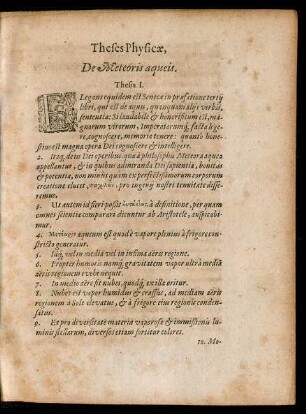 Theses Physicæ,
De Meteoris aqueis.
Thesis I.
ELegans equidem est Senecæ in præfatione tertij
libri, qui est de aquis, quanquam alijs verbis,
sententia: Si laudabile & honorificum est, ma-
gnorum virorum, Imperatorumq; facta lege-
re, cognoscere, memoria tenere: quanto hone-
stius est magna opera Dei cognoscere & intelligere.
2. Itaq; dum Dei operibus quæ à philosophis Meteora aquea
appellantur, & in quibus admiranda Dei sapientia, bonitas
& potentia, non minus quàm ex perfectissimorum corporum
creatione elucet, pro ingenij nostri tenuitate disse-
remus.
3. Ut autem id fieri possit à definitione, per quam
omnes scientiæ comparari dicuntur ab Aristotele, auspicabi-
mur.
4. aqueum est quod è vapore pleniùs à frigore con-
stricto generatur.
5. Idq; vel in media vel in infima aëris regione.
6. Propter humoris namq; gravitatem vapor ultra mediã
aëris regionem evehi nequit.
7. In medio aëre fit nubes, quodq́; ex illa oritur.
8. Nubes est vapor humidus & crassus, ad mediam aëris
regionem à Sole elevatus, & à frigore eius regionis conden-
satus.
9. Et pro diversitate materiæ vaporosæ & immissionis lu-
minis siderum, diversos etiam sortitur colores.
10. Mo-